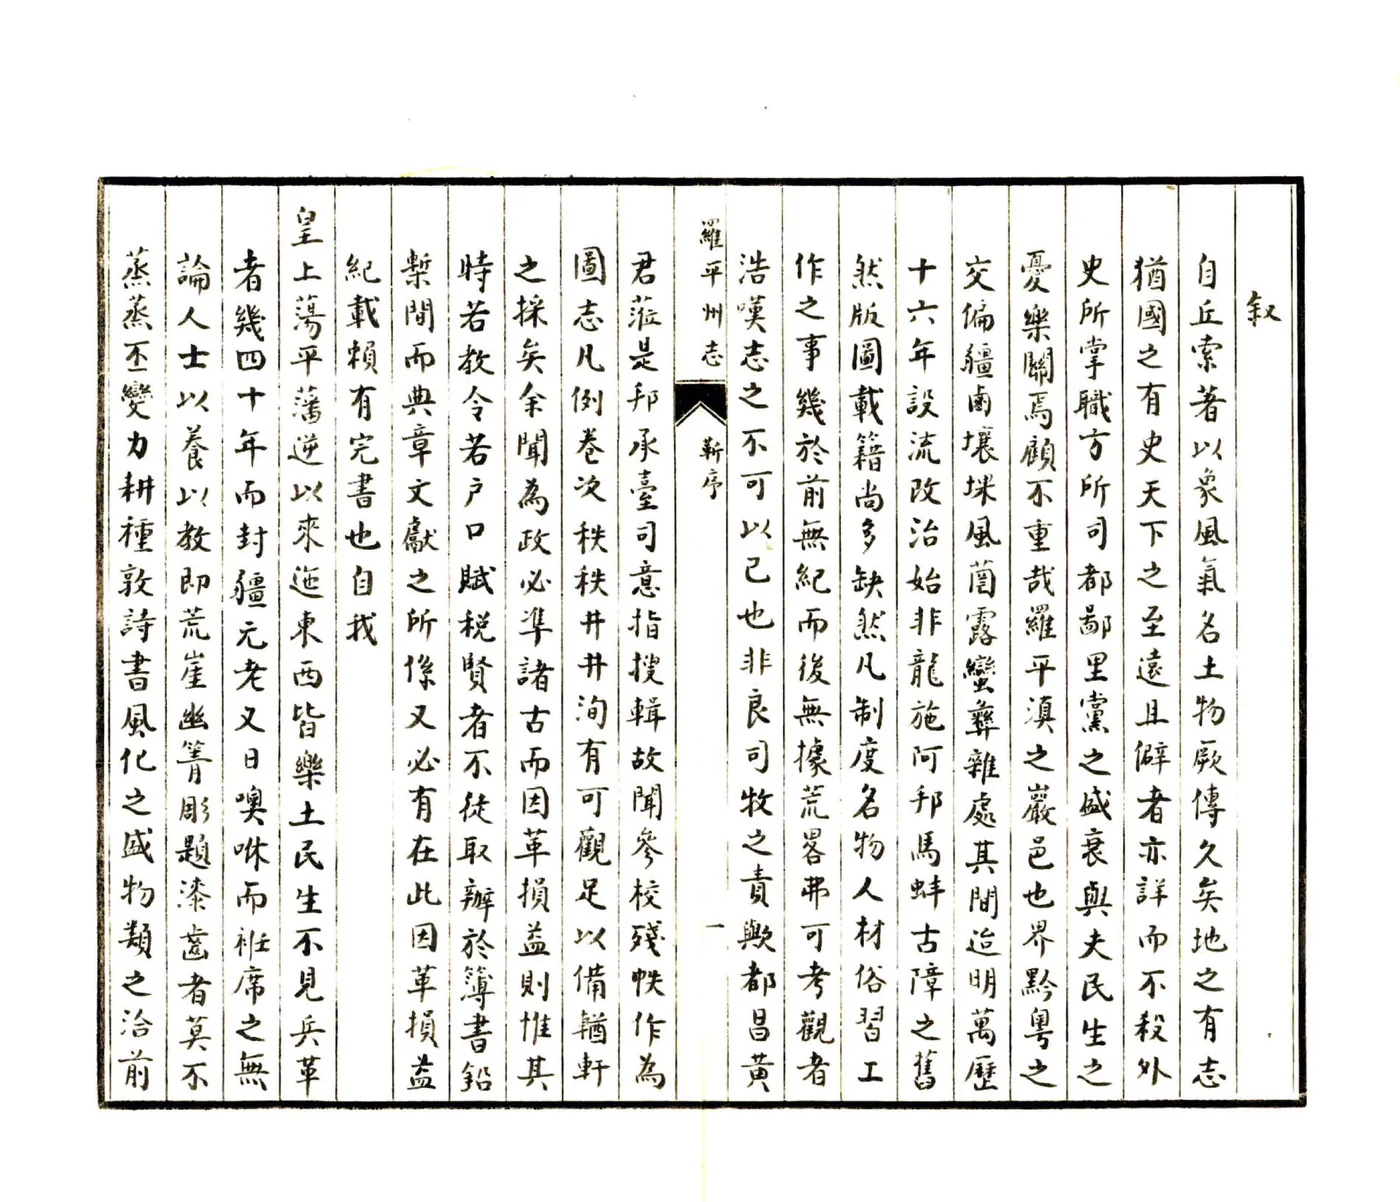 叙
自丘索著以象風氣名土物厥傳久矣地之有志
猶國之有史天下之至遠且僻者亦詳而不殺外
史所掌職方所司都鄙里黨之盛衰與夫民生之
憂樂關焉顧不重哉羅平滇之巖邑也界黔粵之
交偏疆鹵壤垛風菌露蠻彝雜處其間迨明萬歷
十六年設流改治始非龍施阿邦馬蚌古障之舊
然版圖載籍尚多缺然凡制度名物人材俗習工
作之事幾於前無紀而後無據荒畧弗可考觀者
浩嘆志之不可以已也非良司牧之責歟都昌黃
羅平州志 靳序 一
君蒞是邦承臺司意指搜輯故聞參校殘帙作為
圖志凡例卷次秩秩井井洵有可觀足以備輶軒
之採矣余聞為政必準諸古而因革損益則惟其
時若教令若戶口賦稅賢者不徒取辦於簿書鉛
槧間而典章文獻之所係又必有在此因革損益
紀載賴有完書也自我
皇上蕩平藩逆以來迤東西皆樂土民生不見兵革
者幾四十年而封疆元老又日噢咻而袵席之無
論人士以養以教即荒崖幽箐彫題漆齒者莫不
蒸蒸丕變力耕種敦詩書風化之盛物類之洽前